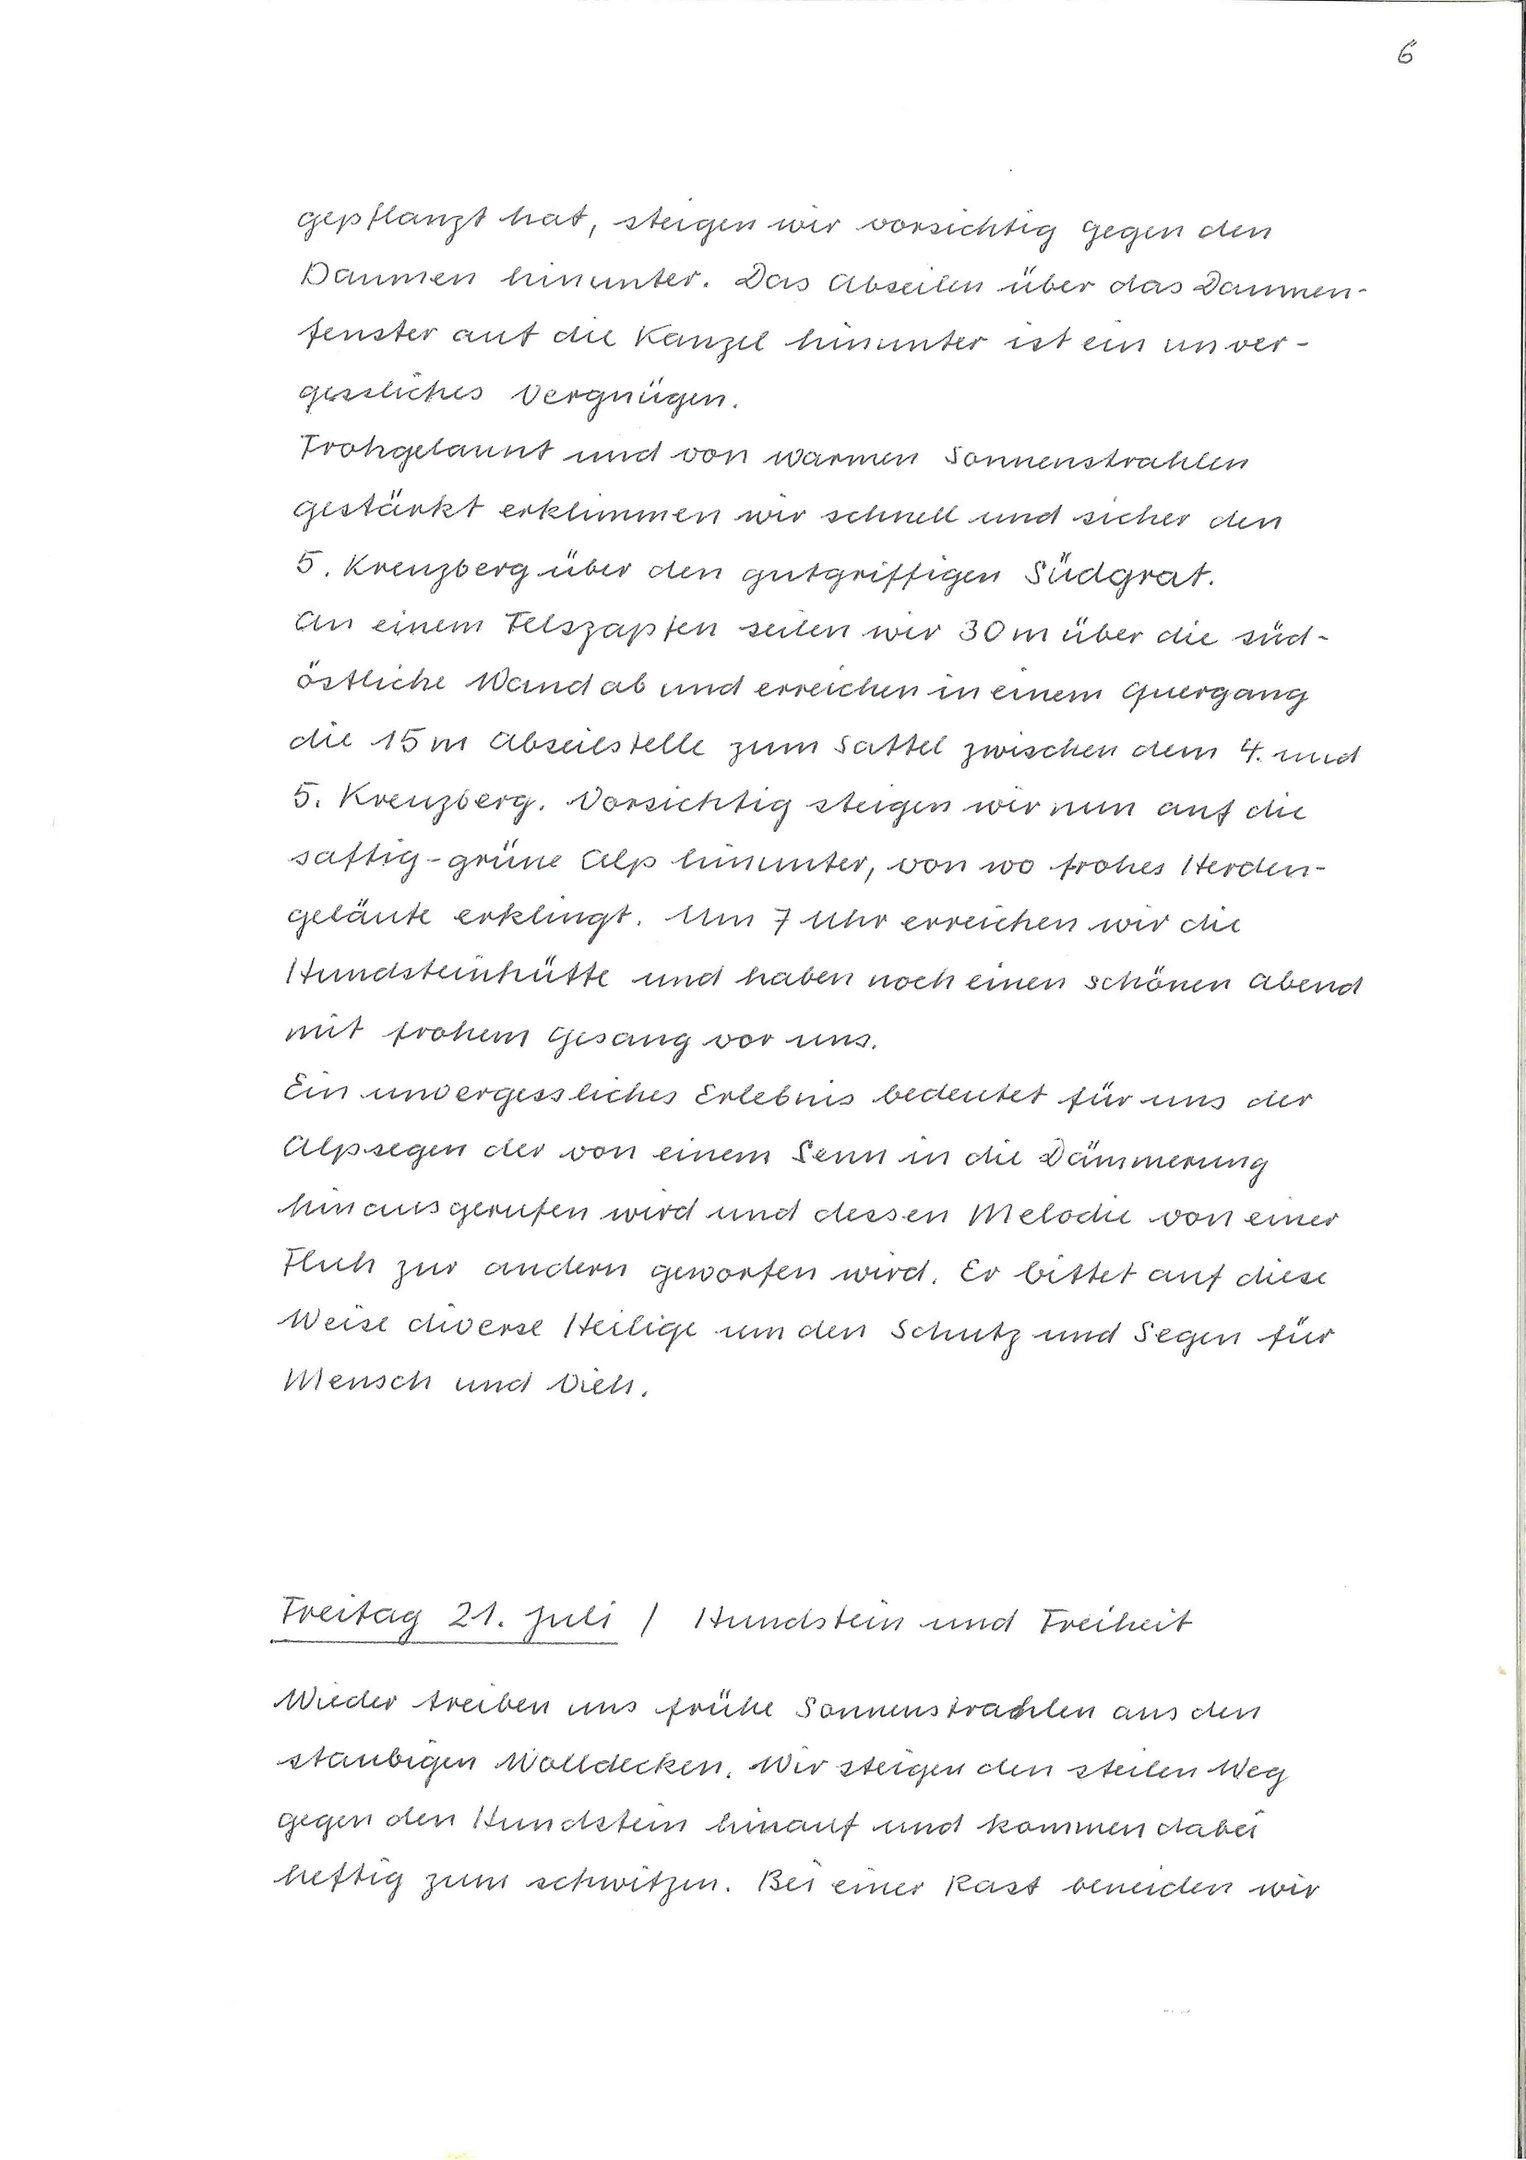 6
gepflanzt hat, steigen wir vorsichtig gegen den
Daumen hinunter. Das Abseilen über das Daumen-
fenster auf die Kanzel hinunter ist ein unver-
gessliches Vergnügen.
Frohgelaunt und von warmen Sonnenstrahlen
gestärkt erklimmen wir schnell und sicher den
5. Kreuzberg über den gutgriffigen Südgrat.
An einem Felszapfen seilen wir 30m über die süd-
östliche Wand ab und erreichen in einem Quergang
die 15m Abseilstelle zum Sattel zwischen dem 4. und
5. Kreuzberg. Vorsichtig steigen wir nun auf die
saftig-grüne Alp hinunter, von wo frohes Herden-
geläute erklingt. Um 7 Uhr erreichen wir die
Hundsteinhütte und haben noch einen schönen Abend
mit frohem Gesang vor uns.
Ein unvergessliches Erlebnis bedeutet für uns der
Alpsegen der von einem Senn in die Dämmerung
hinausgerufen wird und dessen Melodie von einer
Fluh zur andern geworfen wird. Er bittet auf diese
Weise diverse Heilige um den Schutz und Segen für
Mensch und Vieh.
Freitag 21. Juli / Hundstein und Freiheit
Wieder treiben uns frühe Sonnenstrahlen aus den
staubigen Wolldecken. Wir steigen den steilen Weg
gegen den Hundstein hinauf und kommen dabei
heftig zum schwitzen. Bei einer Rast beneiden wir